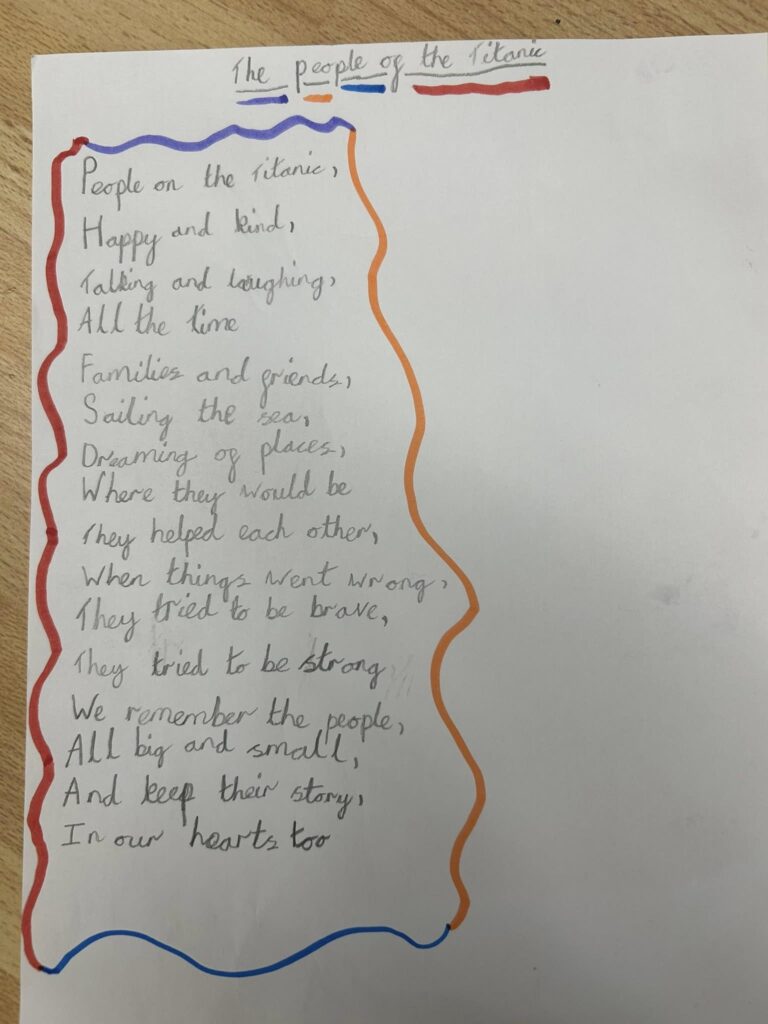 The people of the Titanic
People on the Titanic,
Happy and kind,
Talking and laughing,
All the time
Families and friends,
Sailing the sea,
Dreaming of places,
Where they would be
They helped each other,
When things went wrong,
They tried to be brave,
They tried to be strong
We remember the people,
All big and small,
And keep their story,
In our hearts too